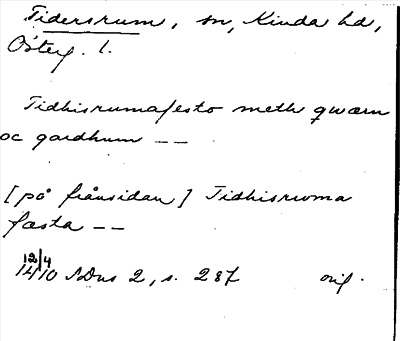 Tidersrum, sn, Kinda hd,
Österg. l.
Tidhisrumafesto meth qwærn
oc gardhum --
[på frånsidan] Tidhisrwma
fæsta --
12/4
1410 SDns 2, s. 287 orig.